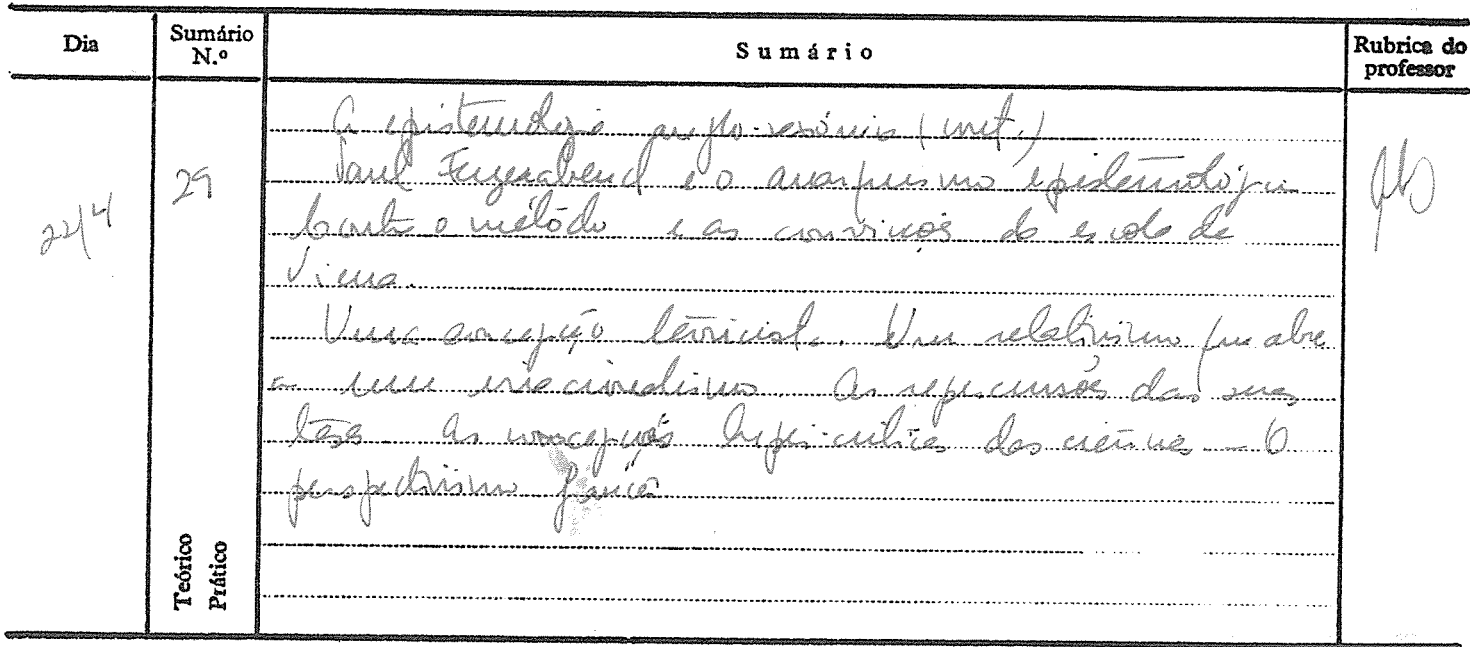 Dia
Sumário N.º
Sumário
Rubrica do professor
22/4
29
A epistemologia anglo-saxónica (cont.)
Paul Feyerabend e o anarquismo epistemológico
Contra o método e as convicções da escola de
Viena.
Uma concepção teoricista. Um relativismo que abre
a um irracionalismo. As repercussões das suas
teses. As concepções hiper-críticas das ciências – O
perspectivismo francês
Teórico
Prático